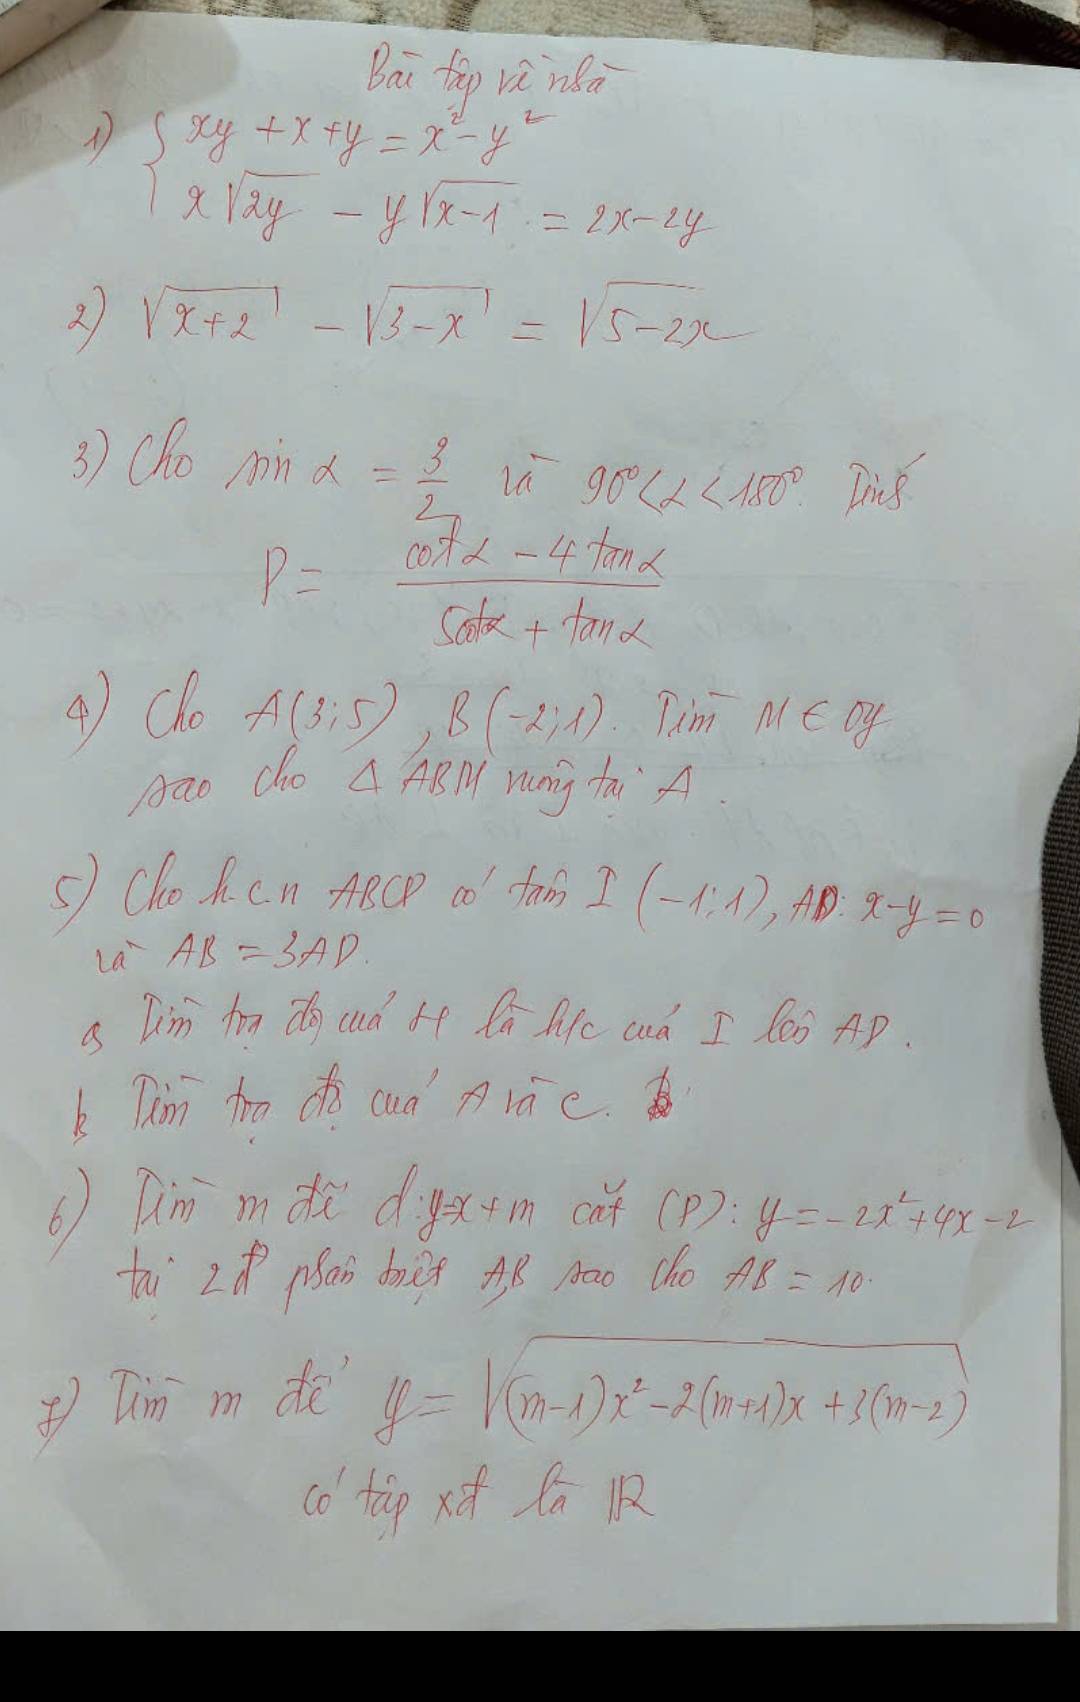 Bài tập về nhà
1) { xy + x + y = x² - y²
x√2y - y√x-1 = 2x-2y
2) √x+2 - √3-x = √5-2x
3) Cho sin α = 3/2 và 90°<α<180°. Tính
P = (cotα - 4 tanα)/(5cotα + tanα)
4) Cho A(3;5), B(-2;1). Tìm M ∈ Oy
sao cho Δ ABM vuông tại A.
5) Cho h.c.n ABCD có tâm I (-1;1), AD: x-y=0
và AB = 3AD.
a) Tìm toạ độ của H là h/c của I lên AD.
b) Tìm toạ độ của A và C.
6) Tìm m để d: y=x+m cắt (P): y = -2x²+4x-2
tại 2đ phân biệt A,B sao cho AB = 10.
7) Tìm m để y = √(m-1)x²-2(m+1)x+3(m-2)
có tập xđ là ℝ